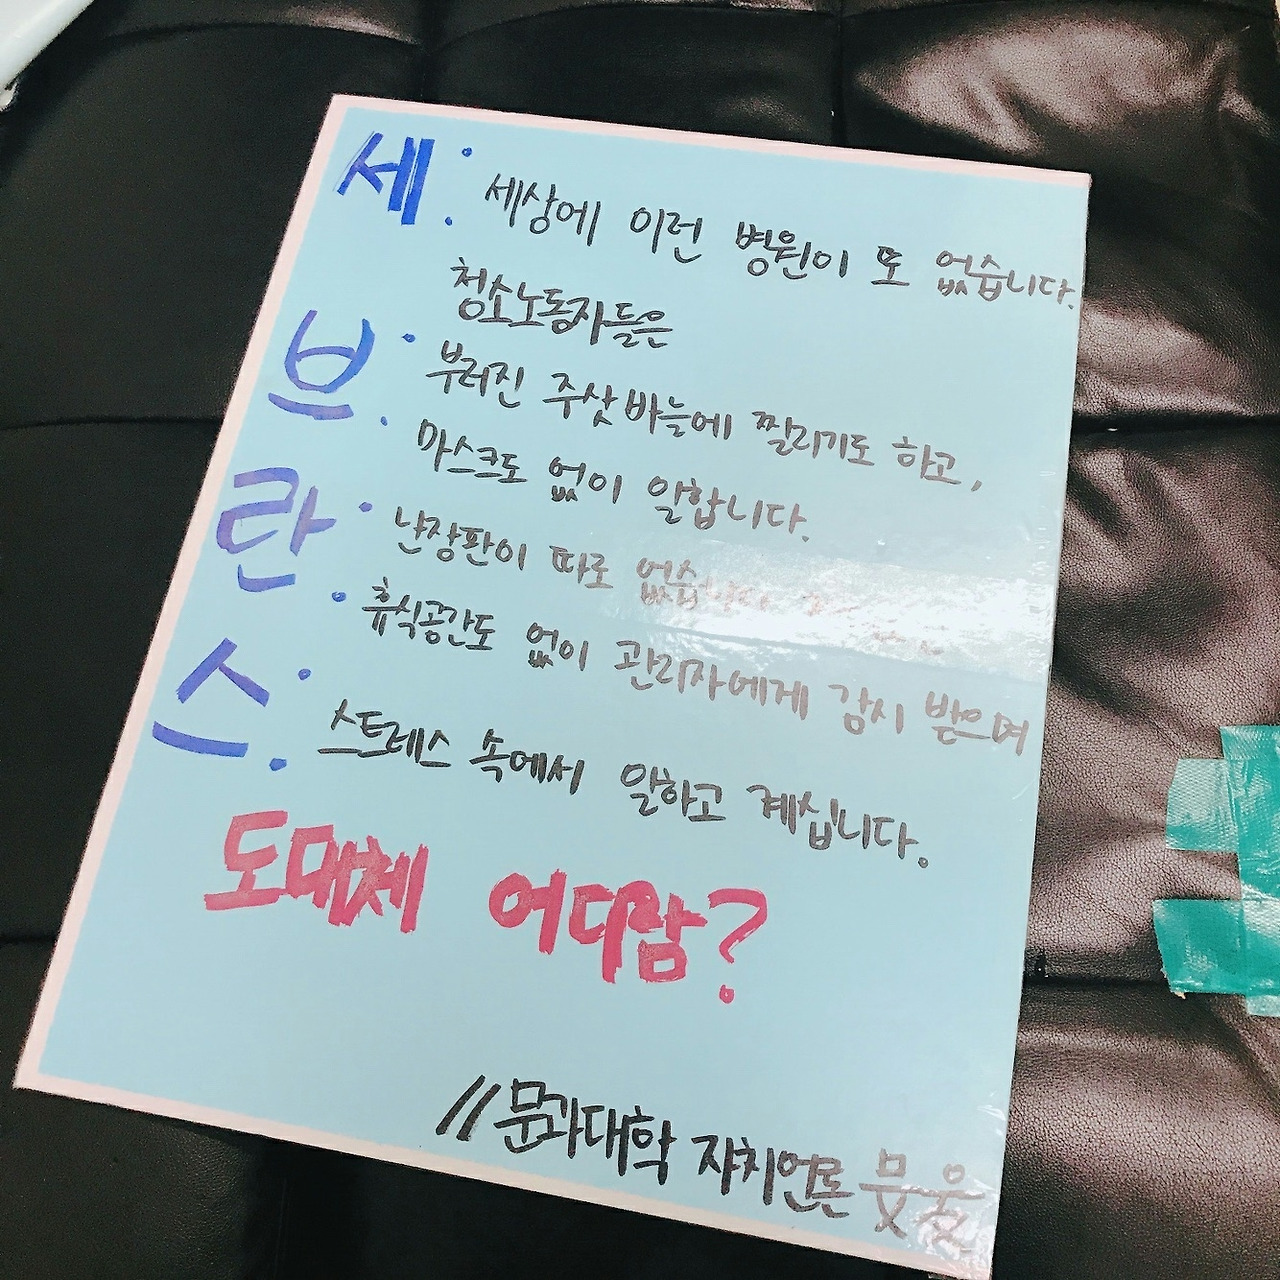 세: 세상에 이런 병원이 또 없습니다.
청소노동자들은
브: 부러진 주삿바늘에 찔리기도 하고,
마스크도 없이 일합니다.
란: 난장판이 따로 없습니다
휴식공간도 없이 관리자에게 감시 받으며
스: 스트레스 속에서 일하고 계십니다.
도대체 어디람?
// 문과대학 자치언론